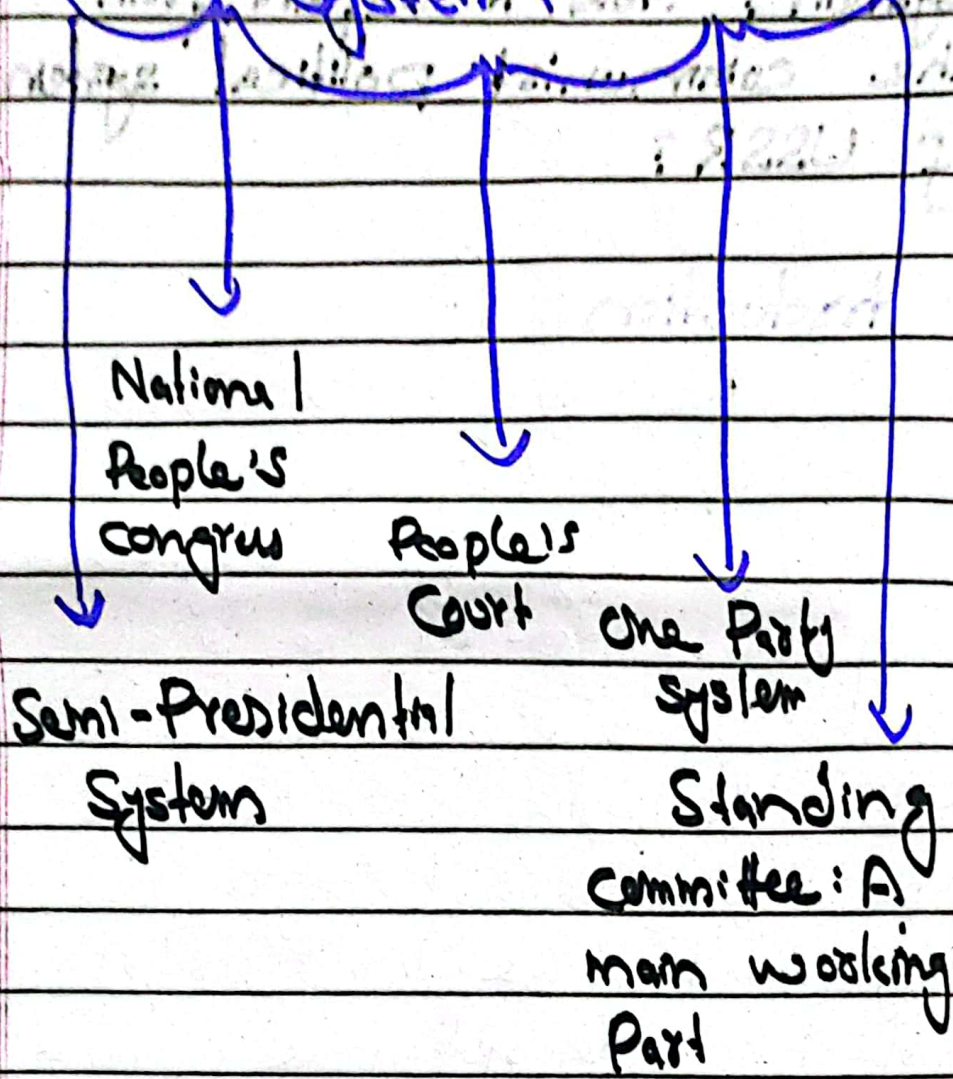 System
National
People's
congress
People's
Court
One Party
system
Semi-Presidential
System
Standing
committee: A
main working
Part